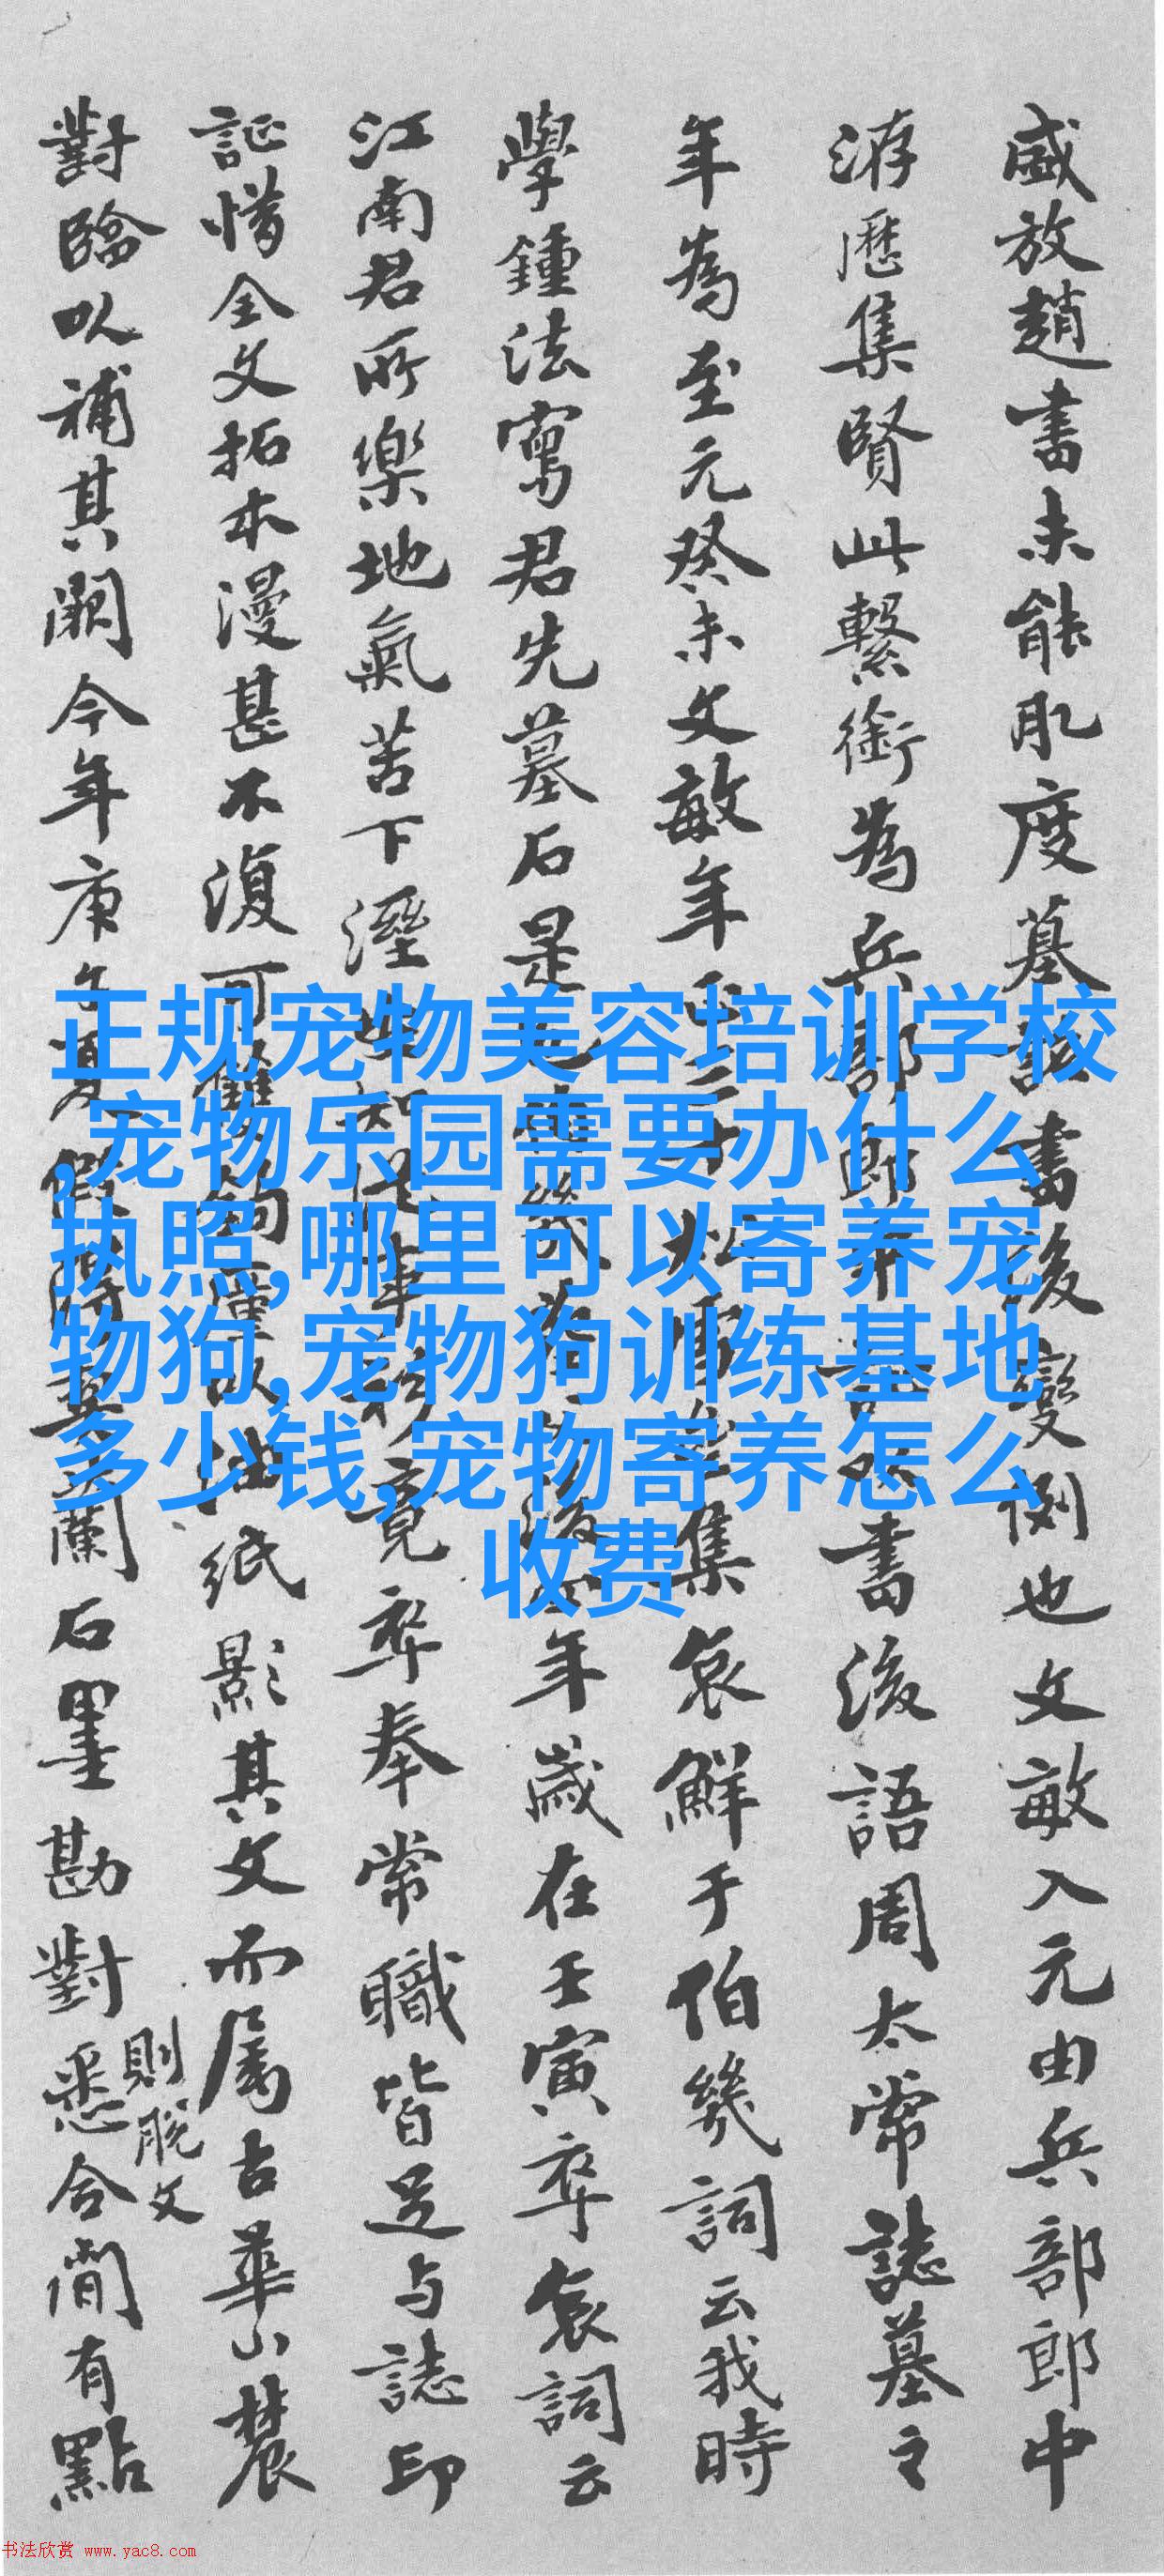 盛放趙書未能肌度墓誌書後變例也文敏入元由兵部郎中
游歷集賢此繫銜為兵部郎中書後語周太常誌墓之
年為至元癸未文敏年正三十松雪集哀鮮于伯幾詞云我時
學鍾法寫君先墓石是伯幾後年歲在壬寅卒哀詞云
江南君所樂地氣苦下溼竟卒奉常職皆足与誌印
証惜全文拓本漫甚不復可雙鉤僅以油紙影其文而属古華山農
對臨以補其闕今年庚午夏假得蘭石墨勘對悉合間有點
則脫文
正规宠物美容培训学校
,宠物乐园需要办什么
执照,哪里可以寄养宠
物狗,宠物狗训练基地
多少钱,宠物寄养怎么
收费
书法欣赏 www.yac8.com